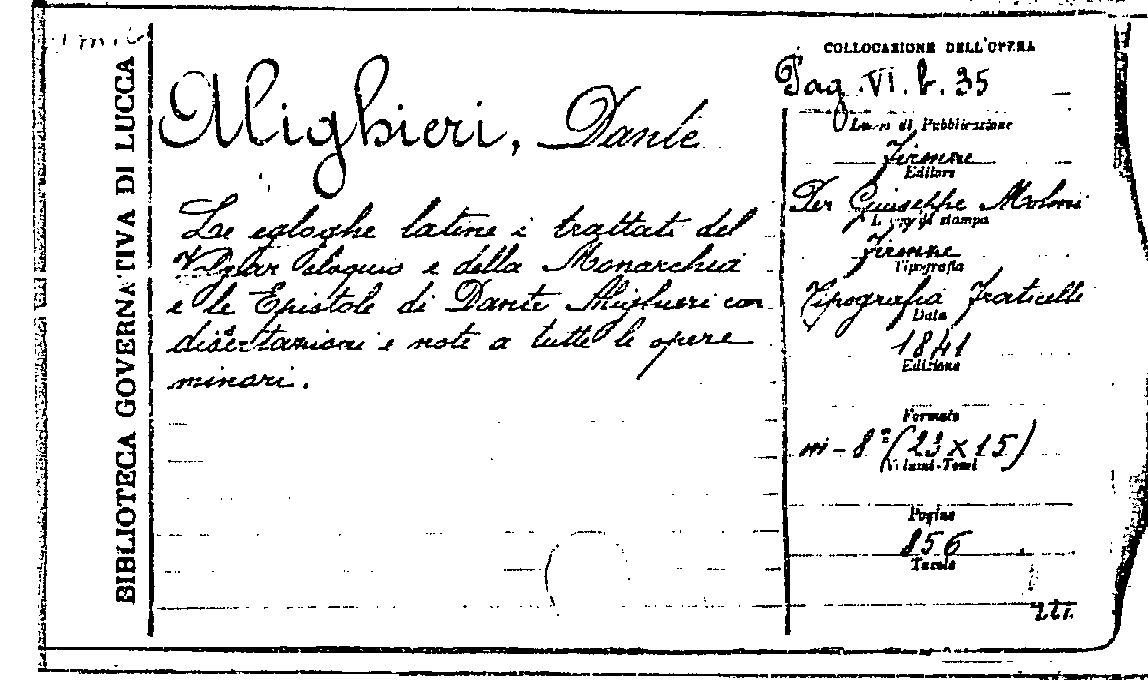 BIBLIOTECA GOVERNATIVA DI LUCCA
Alighieri, Dante
Le egloghe latine i trattati del
Volgar eloquio e della Monarchia
e le Epistole di Dante Alighieri con
disertazioni e note a tutte le opere
minori.
COLLOCAZIONE DELL'OPERA
Pag. VI. b. 35
Luogo di Pubblicazione
Firenze
Editore
Per Giuseppe Molini
Luogo di stampa
Firenze
Tipografia
Tipografia Fraticelli
Data
1841
Edizione
Formato
in-8° (23 x 15)
Volumi-Tomi
Pagine
856
Tavole